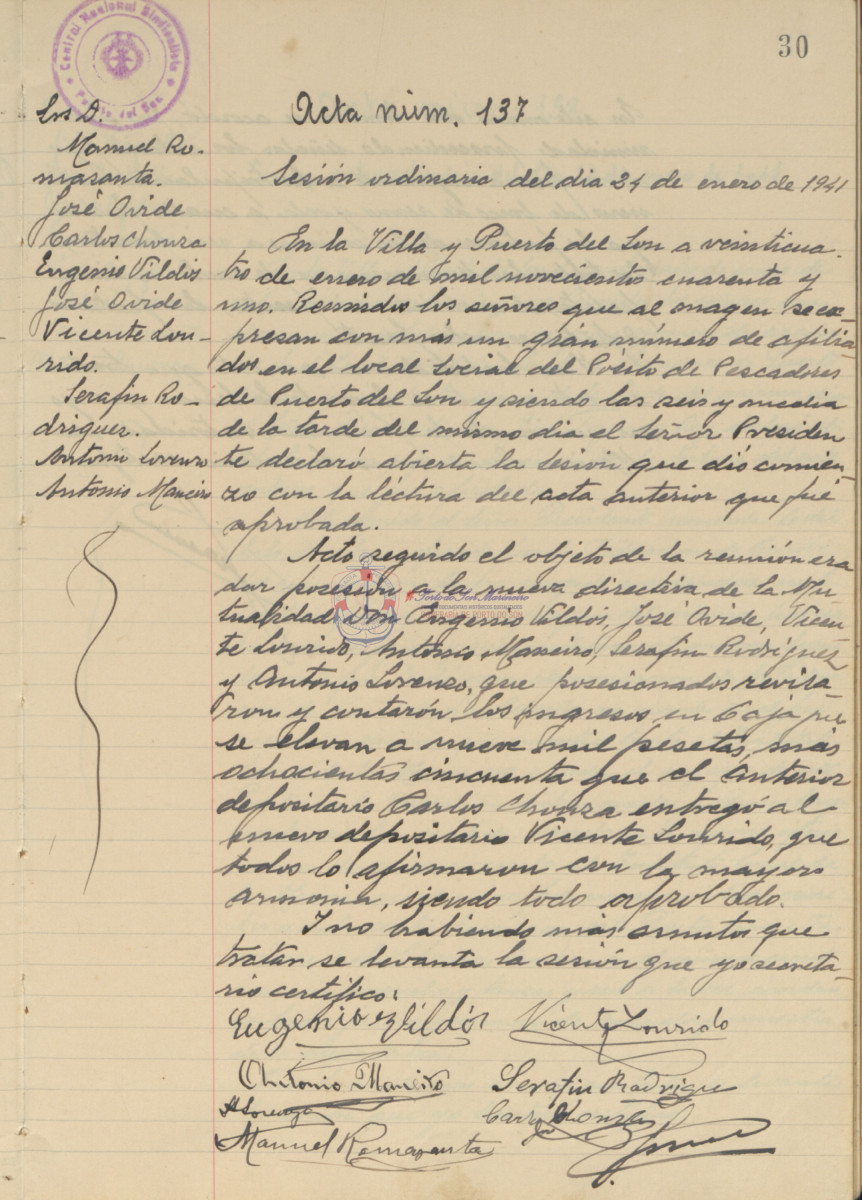 30
Central Nacional Sindicalista
Puerto del Son
Acta núm. 137
Srs D.
Manuel Ro-
masanta.
José Ovide
Carlos Chouza
Eugenio Vildós
José Ovide
Vicente Lou-
rido.
Serafin Ro-
driguez.
Antonio Lorenzo
Antonio Maneiro
Sesión ordinaria del dia 24 de enero de 1941
En la Villa y Puerto del Son a veinticua-
tro de enero de mil novecientos cuarenta y
uno. Reunidos los señores que al magen se ex-
presan con más un grán número de afilia-
dos en el local Social del Pósito de Pescadores
de Puerto del Son y siendo las seis y media
de la tarde del mismo dia el Señor Presiden
te declaró abierta la sesión que dió comien-
zo con la léctura del acta anterior que fué
aprobada.
Acto seguido el objeto de la reunión era
dar posesión a la nueva directiva de la Mu-
tualidad Don Eugenio Vildós, José Ovide, Vicen-
te Lourido, Antonio Maneiro, Serafin Rodríguez
y Antonio Lorenzo, que posesionados revisa-
ron y contarón los ingresos en Caja que
se elevan a nueve mil pesetas, más
ochocientas cincuenta que el anterior
depositario Carlos Chouza entregó al
nuevo depositario Vicente Lourido, que
todos lo afirmaron con la mayor
armonia, siendo todo aprobado.
Y no habiendo más asuntos que
tratar se levanta la sesión que yo secreta-
rio certifico:
Porto do Son Marineiro
Eugenio Vildós Vicente Lourido
Antonio Maneiro Serafin Rodrigue
A Lorenzo Carlos Chouza
Manuel Romasanta